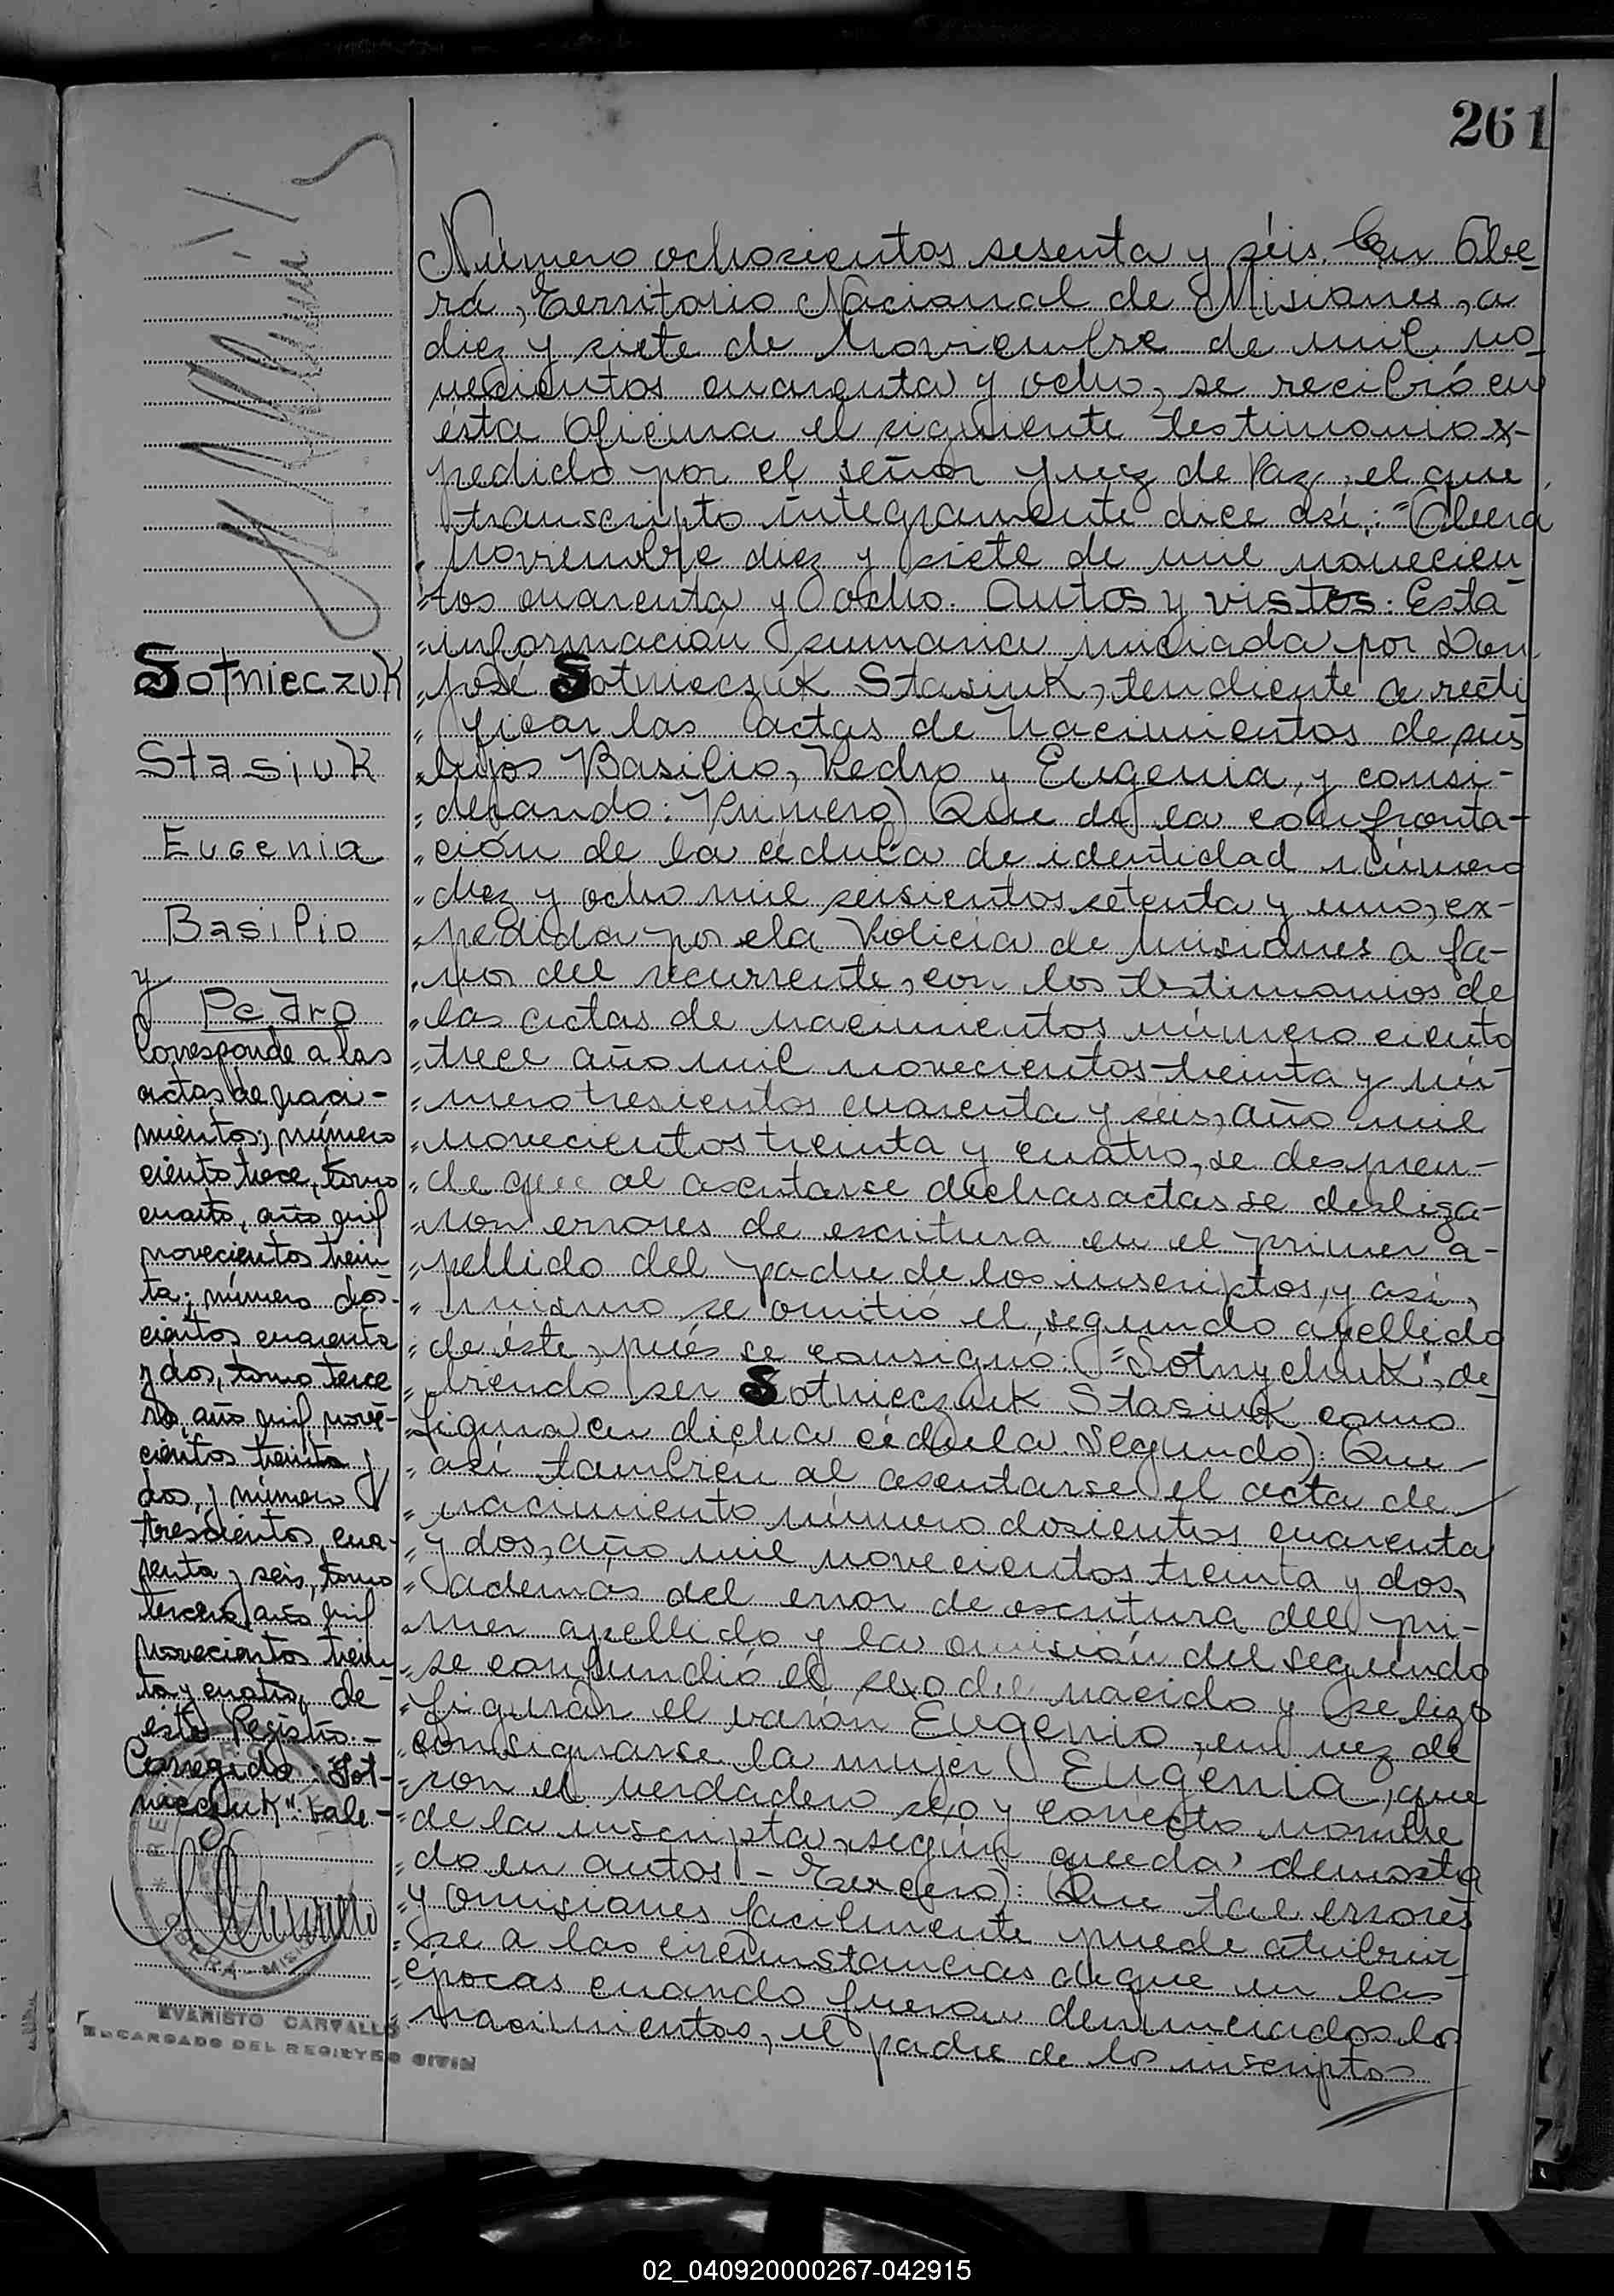 261
Número ochocientos sesenta y séis. En Obe-
rá, Territorio Nacional de Misiones, a
diez y siete de Noviembre de mil no-
vecientos cuarenta y ocho, se recibió en
ésta Oficina el siguiente testimonio ex-
pedido por el señor Juez de Paz, el que
transcripto íntegramente dice así: "Oberá
Noviembre diez y siete de mil novecien
"tos cuarenta y ocho. Autos y vistos: Esta
"información sumaria iniciada por Don
"José Sotnieczuk Stasiuk, tendiente a recti
"ficar las actas de nacimientos de sus
"hijos Basilio, Pedro y Eugenia, y consi-
"derando: Primero) Que de la confronta-
"ción de la cédula de identidad número
"diez y ocho mil seisientos setenta y uno, ex-
"pedida por la Policía de Misiones a fa-
"vor del recurrente, con los testimonios de
"las actas de nacimientos número ciento
"trece año mil novecientos treinta y nú-
"mero tresientos cuarenta y séis, año mil
"novecientos treinta y cuatro, se despren-
"de que al asentarse dichas actas se desliza-
"ron errores de escritura en el primer a-
"pellido del padre de los inscriptos, y así
"mismo se omitió el segundo apellido
"de éste, pués se consigno: "Sotnychuk", de-
"biendo ser Sotnieczuk Stasiuk como
"figura en dicha cédula. Segundo): Que
"así también al asentarse el acta de
"nacimiento número dosientos cuarenta
"y dos, año mil novecientos treinta y dos,
"además del error de escritura del pri-
"mer apellido y la omisión del segundo
"se confundió el sexo del nacido y se hizo
"figurar el varón Eugenio, en vez de
"consignarse la mujer Eugenia, que
"son el verdadero sexo y correcto nombre
"de la inscripta, según queda demostra
"do en autos - Tercero): Que tal errores
"y omisiones facilmente puede atribuir
"se a las circunstancias de que en las
"épocas cuando fueron denunciados los
"nacimientos, el padre de los inscriptos
Sotnieczuk
Stasiuk
Eugenia
Basilio
y
Pedro
Corresponde a las
actas de naci-
mientos; número
ciento trece, tomo
cuarto, año mil
novecientos trein
ta; número dos-
cientos cuarenta
y dos, tomo terce
ro, año mil nove-
cientos treinta y
dos, y número
trescientos cua-
renta y seis, tomo
tercero año mil
novecientos trein
ta y cuatro, de
éste Registro.-
Corregido: "Sot-
nieczuk": Vale-
EVARISTO CARVALLO
ENCARGADO DEL REGISTRO CIVIL
02_040920000267-042915